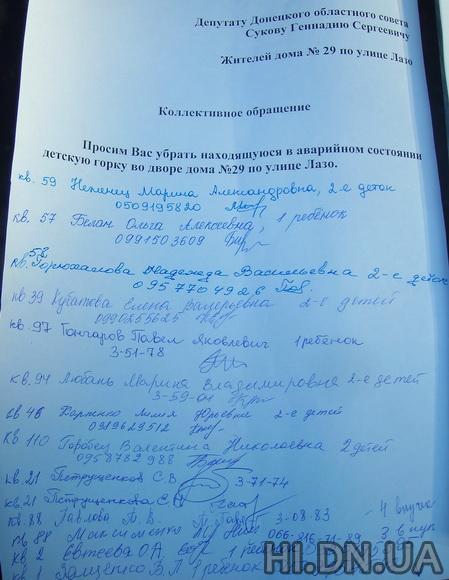 Депутату Донецкого областного совета
Сукову Геннадию Сергеевичу
Жителей дома № 29 по улице Лазо
Коллективное обращение
Просим Вас убрать находящуюся в аварийном состоянии
детскую горку во дворе дома №29 по улице Лазо.
кв. 59 Марина Александровна, 2-е деток
0509195820
кв. 57 Белан Ольга Алексеевна, 1 ребёнок
0991503609
52
кв. Надежда Васильевна 2-е деток
0957704926
кв 39 Елена Валерьевна 2-е детей
0990255625
кв. 97 Гончаров Павел Яковлевич 1 ребёнок
3-51-78
кв. 94 Любань Марина Владимировна 2-е детей
3-59-01
кв 46 Лилия Юрьевна 2-е детей
0919629512
кв 110 Горобец Валентина Николаевна 2 детей
0958782988
кв. 21 Петрущенков С.В. 3-71-74
кв. 21 Петрущенкова
кв. 88 Павлова 3-08-83 4 внучка
кв 88 Максименко 066-816-71-89
кв 2 Евтеева О.А. 1
кв 1 1 ребёнок
HI.DN.UA